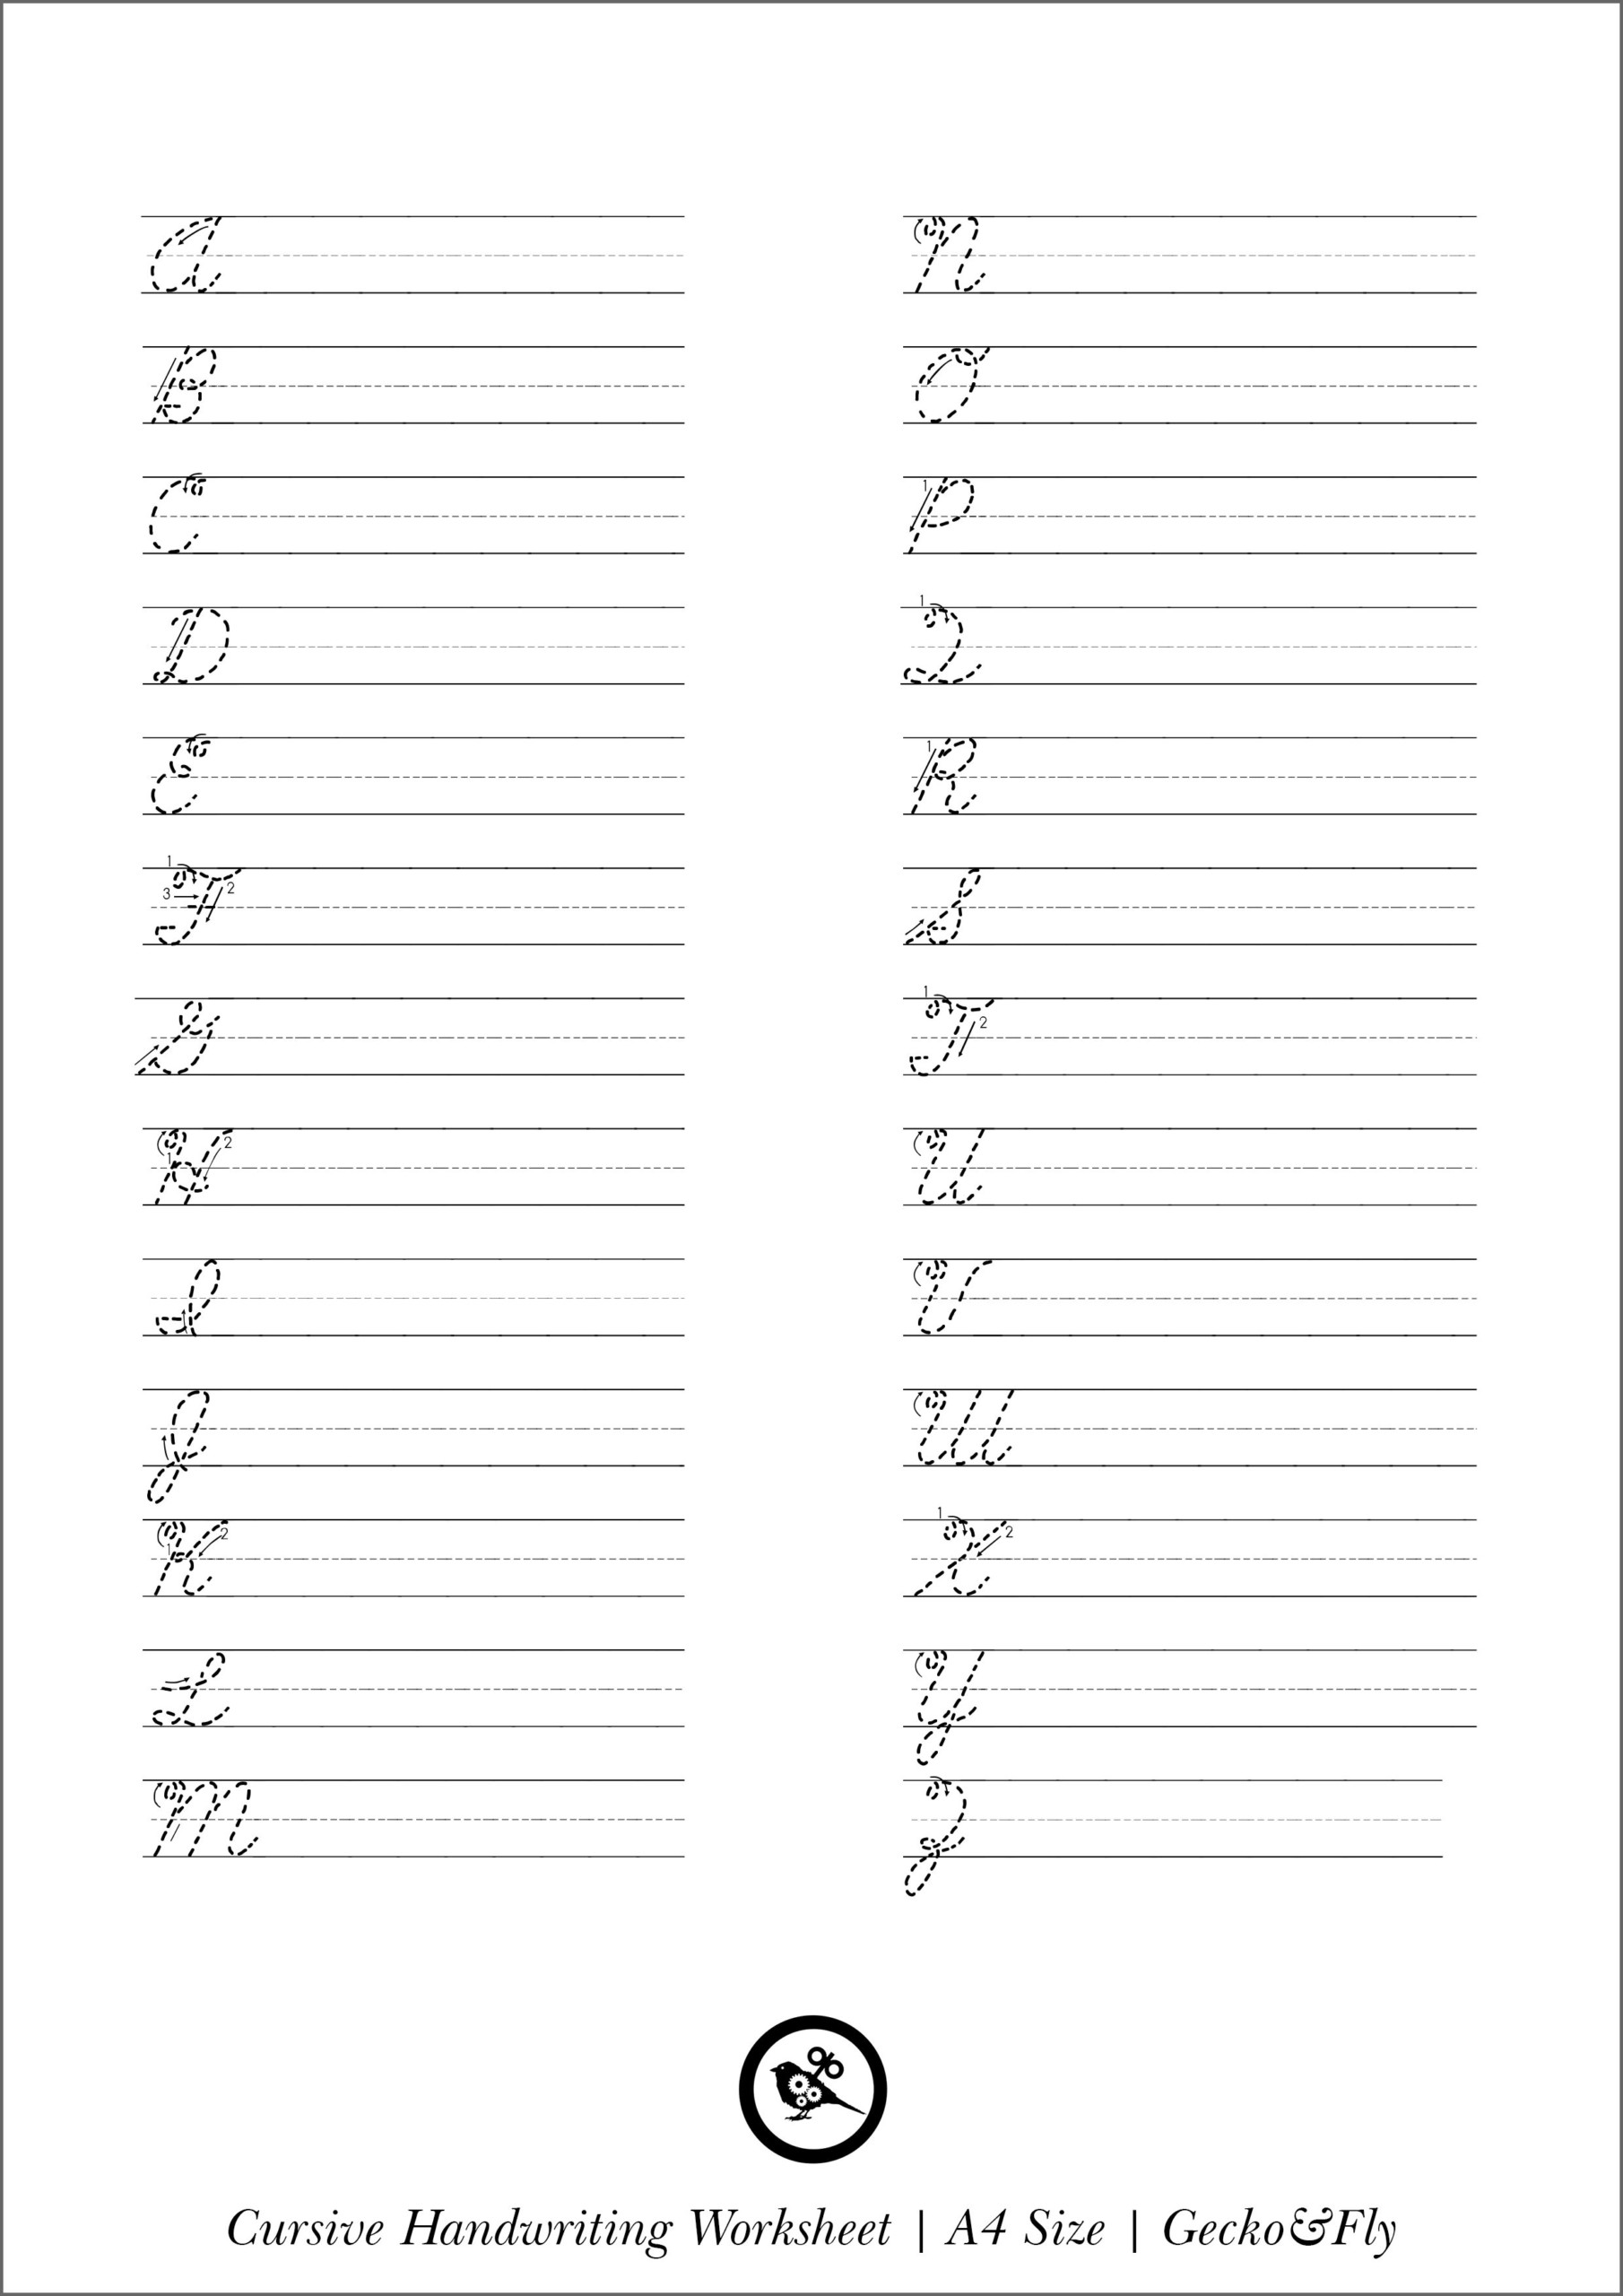 A
B
C
D
E
1 3 F 2
G
1 H 2
I
J
1 K 2
L
M
N
O
1 P
1 Q
1 R
S
1 T 2
U
V
W
1 X 2
Y
Z
Cursive Handwriting Worksheet | A4 Size | Gecko&Fly